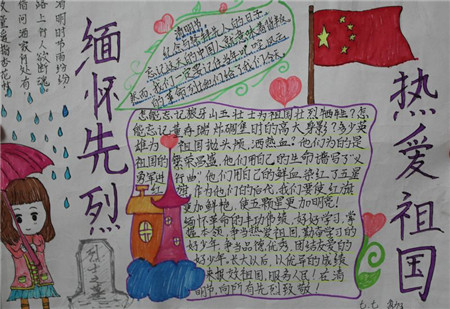 缅怀先烈
热爱祖国
清明时节雨纷纷
路上行人欲断魂
借问酒家何处有
清明节
纪念的革命先人的日子。
忘记过去的中国人就意味着背叛
怎能忘记狼牙山五壮士为祖国壮烈牺牲?怎
能忘记董存瑞炸碉堡时的高大身影?多少英
雄为祖国抛头颅,洒热血!他们为的是
祖国的繁荣昌盛,他们用自己的生命谱写了"义
勇军进行曲",他们用自己的鲜血染红了五星
红旗,作为他们的后代,我们要使红旗
更加鲜艳,使五颗星更加明亮!
缅怀革命的丰功伟绩,好好学习,掌
握本领,争当热爱祖国,勤奋学习的
好少年,争当品德优秀,团结友爱的
好少年。长大以后,以优异的成绩
来报效祖国,服务人民!在清
明节,向所有先烈致敬!
烈士之墓